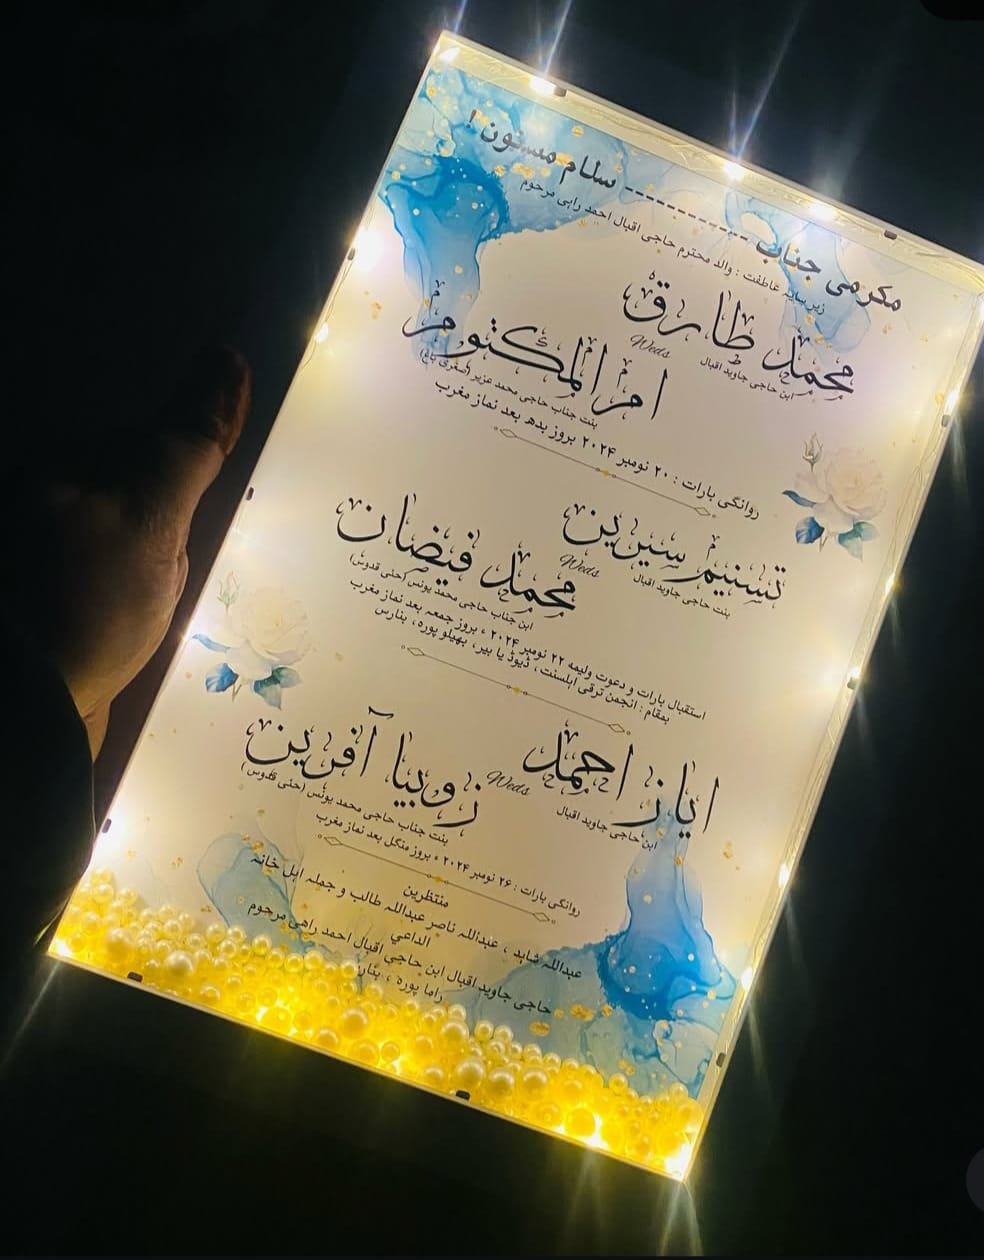 مکرمی جناب ----------------- سلام مسنون !
زیر سایہ عاطفت : والد محترم حاجی اقبال احمد راہی مرحوم
محمد طارق
ابن حاجی جاوید اقبال
Weds
ام المکثوم
بنت جناب حاجی محمد عزیر (صغری باغ)
روانگی بارات : ۲۰ نومبر ۲۰۲۴ بروز بدھ بعد نماز مغرب
تسنیم سیرین
بنت حاجی جاوید اقبال
Weds
محمد فیضان
ابن جناب حاجی محمد یونس (حئی قدوس)
استقبال بارات و دعوت ولیمہ ۲۲ نومبر ۲۰۲۴ ، بروز جمعہ بعد نماز مغرب
بمقام : انجمن ترقی اہلسنت ، ڈیوڈیا بیر، بھیلو پورہ، بنارس
ایاز احمد
ابن حاجی جاوید اقبال
Weds
زوبیا آفرین
بنت جناب حاجی محمد یونس (حئی قدوس )
روانگی بارات : ۲۶ نومبر ۲۰۲۴ ء بروز منگل بعد نماز مغرب
منتظرین
عبداللہ شاہد ، عبداللہ ناصر عبداللہ طالب و جملہ اہل خانہ
الداعي
حاجی جاوید اقبال ابن حاجی اقبال احمد راهی مرحوم
راما پورہ ، بنارس